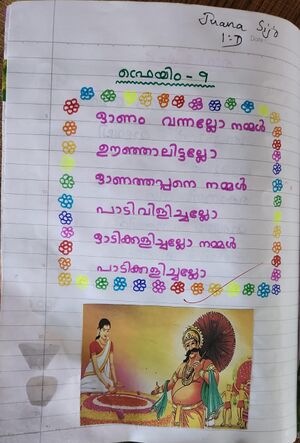 Juana Sijo
1:D
Date
ഫ്രെയിം - 9
ഓണം വന്നല്ലോ നമ്മൾ
ഊഞ്ഞാലിട്ടല്ലോ
ഓണത്തപ്പനെ നമ്മൾ
പാടിവിളിച്ചല്ലോ
ഓടിക്കളിച്ചല്ലോ നമ്മൾ
പാടിക്കളിച്ചല്ലോ